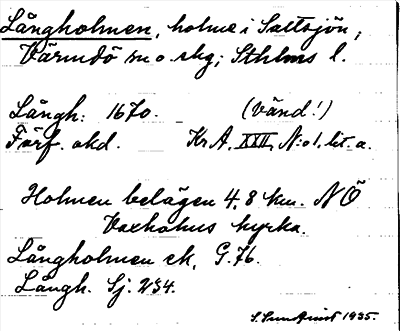 Långholmen, holme i Saltsjön,
Värmdö sn o. skg; Sthlms l.
Långh. 1670. (vänd!)
Förf. okd. Kr A. XXII, N:o 1, lit. a.
Holmen belägen 4,8 km. NÖ
Vaxholms kyrka.
Långholmen ek. G. 76.
Långh. Sj. 234.
S. Sundquist 1935.